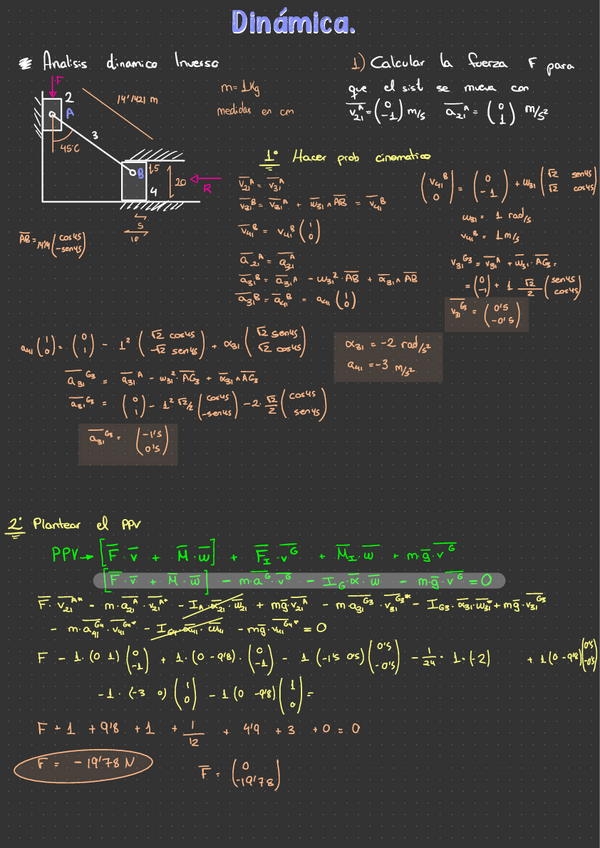 Dinámica.
* Analisis dinamico Inverso
F
2
A
14'1421 m
3
45ºC
B
1,5
4
20
R
5
10
m=1Kg
medidas en cm
1) Calcular la fuerza F para
que el sist se mueva con
v₂₁ᴬ = (0 -1) m/s   a₂₁ᴬ = (0 1) m/s²
AB = 14'14 (cos45 -sen45)
1º Hacer prob cinematico
v₂₁ᴬ = v₃₁ᴬ
v₃₁ᴮ = v₃₁ᴬ + ω₃₁ ∧ AB = v₄₁ᴮ
v₄₁ᴮ = v₄₁ᴮ (1 0)
a₂₁ᴬ = a₃₁ᴬ
a₃₁ᴮ = a₃₁ᴬ - ω₃₁² · AB + α₃₁ ∧ AB
a₃₁ᴮ = a₄₁ᴮ = a₄₁ (1 0)
(v₄₁ᴮ 0) = (0 -1) + ω₃₁ (√2 sen45 √2 cos45)
ω₃₁ = 1 rad/s
v₄₁ᴮ = 1 m/s
v₃₁ᴳ³ = v₃₁ᴬ + ω₃₁ · AG₃ =
= (0 -1) + 1 · √2/2 (sen45 cos45)
v₃₁ᴳ³ = (0'5 -0'5)
a₄₁ (1 0) = (0 1) - 1² (√2 cos45 -√2 sen45) + α₃₁ (√2 sen45 √2 cos45)
α₃₁ = -2 rad/s²
a₄₁ = -3 m/s²
a₃₁ᴳ³ = a₃₁ᴬ - ω₃₁² · AG₃ + α₃₁ ∧ AG₃
a₃₁ᴳ³ = (0 1) - 1² √2/2 (cos45 -sen45) - 2 · √2/2 (cos45 sen45)
a₃₁ᴳ³ = (-1'5 0'5)
2º Plantear el PPV
PPV → [F · v + M · ω] + F_I · vᴳ + M_I · ω + m · g · vᴳ
[F · v + M · ω] - m · aᴳ · vᴳ - I_G · α · ω - m · g · vᴳ = 0
F · v₂₁ᴬ* - m · a₂₁ᴬ · v₂₁ᴬ* - I_A · α₂₁ · ω₂₁ + mg · v₂₁ᴬ - m · a₃₁ᴳ³ · v₃₁ᴳ³* - I_G3 · α₃₁ · ω₃₁ + mg · v₃₁ᴳ³
- m · a₄₁ᴳ⁴ · v₄₁ᴳ⁴* - I_G4 · α₄₁ · ω₄₁ - mg · v₄₁ᴳ⁴* = 0
F - 1 · (0 1) (0 -1) + 1 · (0 -9'8) · (0 -1) - 1 (-1'5 0'5) (0'5 -0'5) - 1/24 · 1 · (-2) + 1 (0 -9'8) (0'5 -0'5)
-1 · (-3 0) (1 0) - 1 (0 -9'8) (1 0) =
F + 1 + 9'8 + 1 + 1/12 + 4'9 + 3 + 0 = 0
F = -19'78 N
F = (0 -19'78)